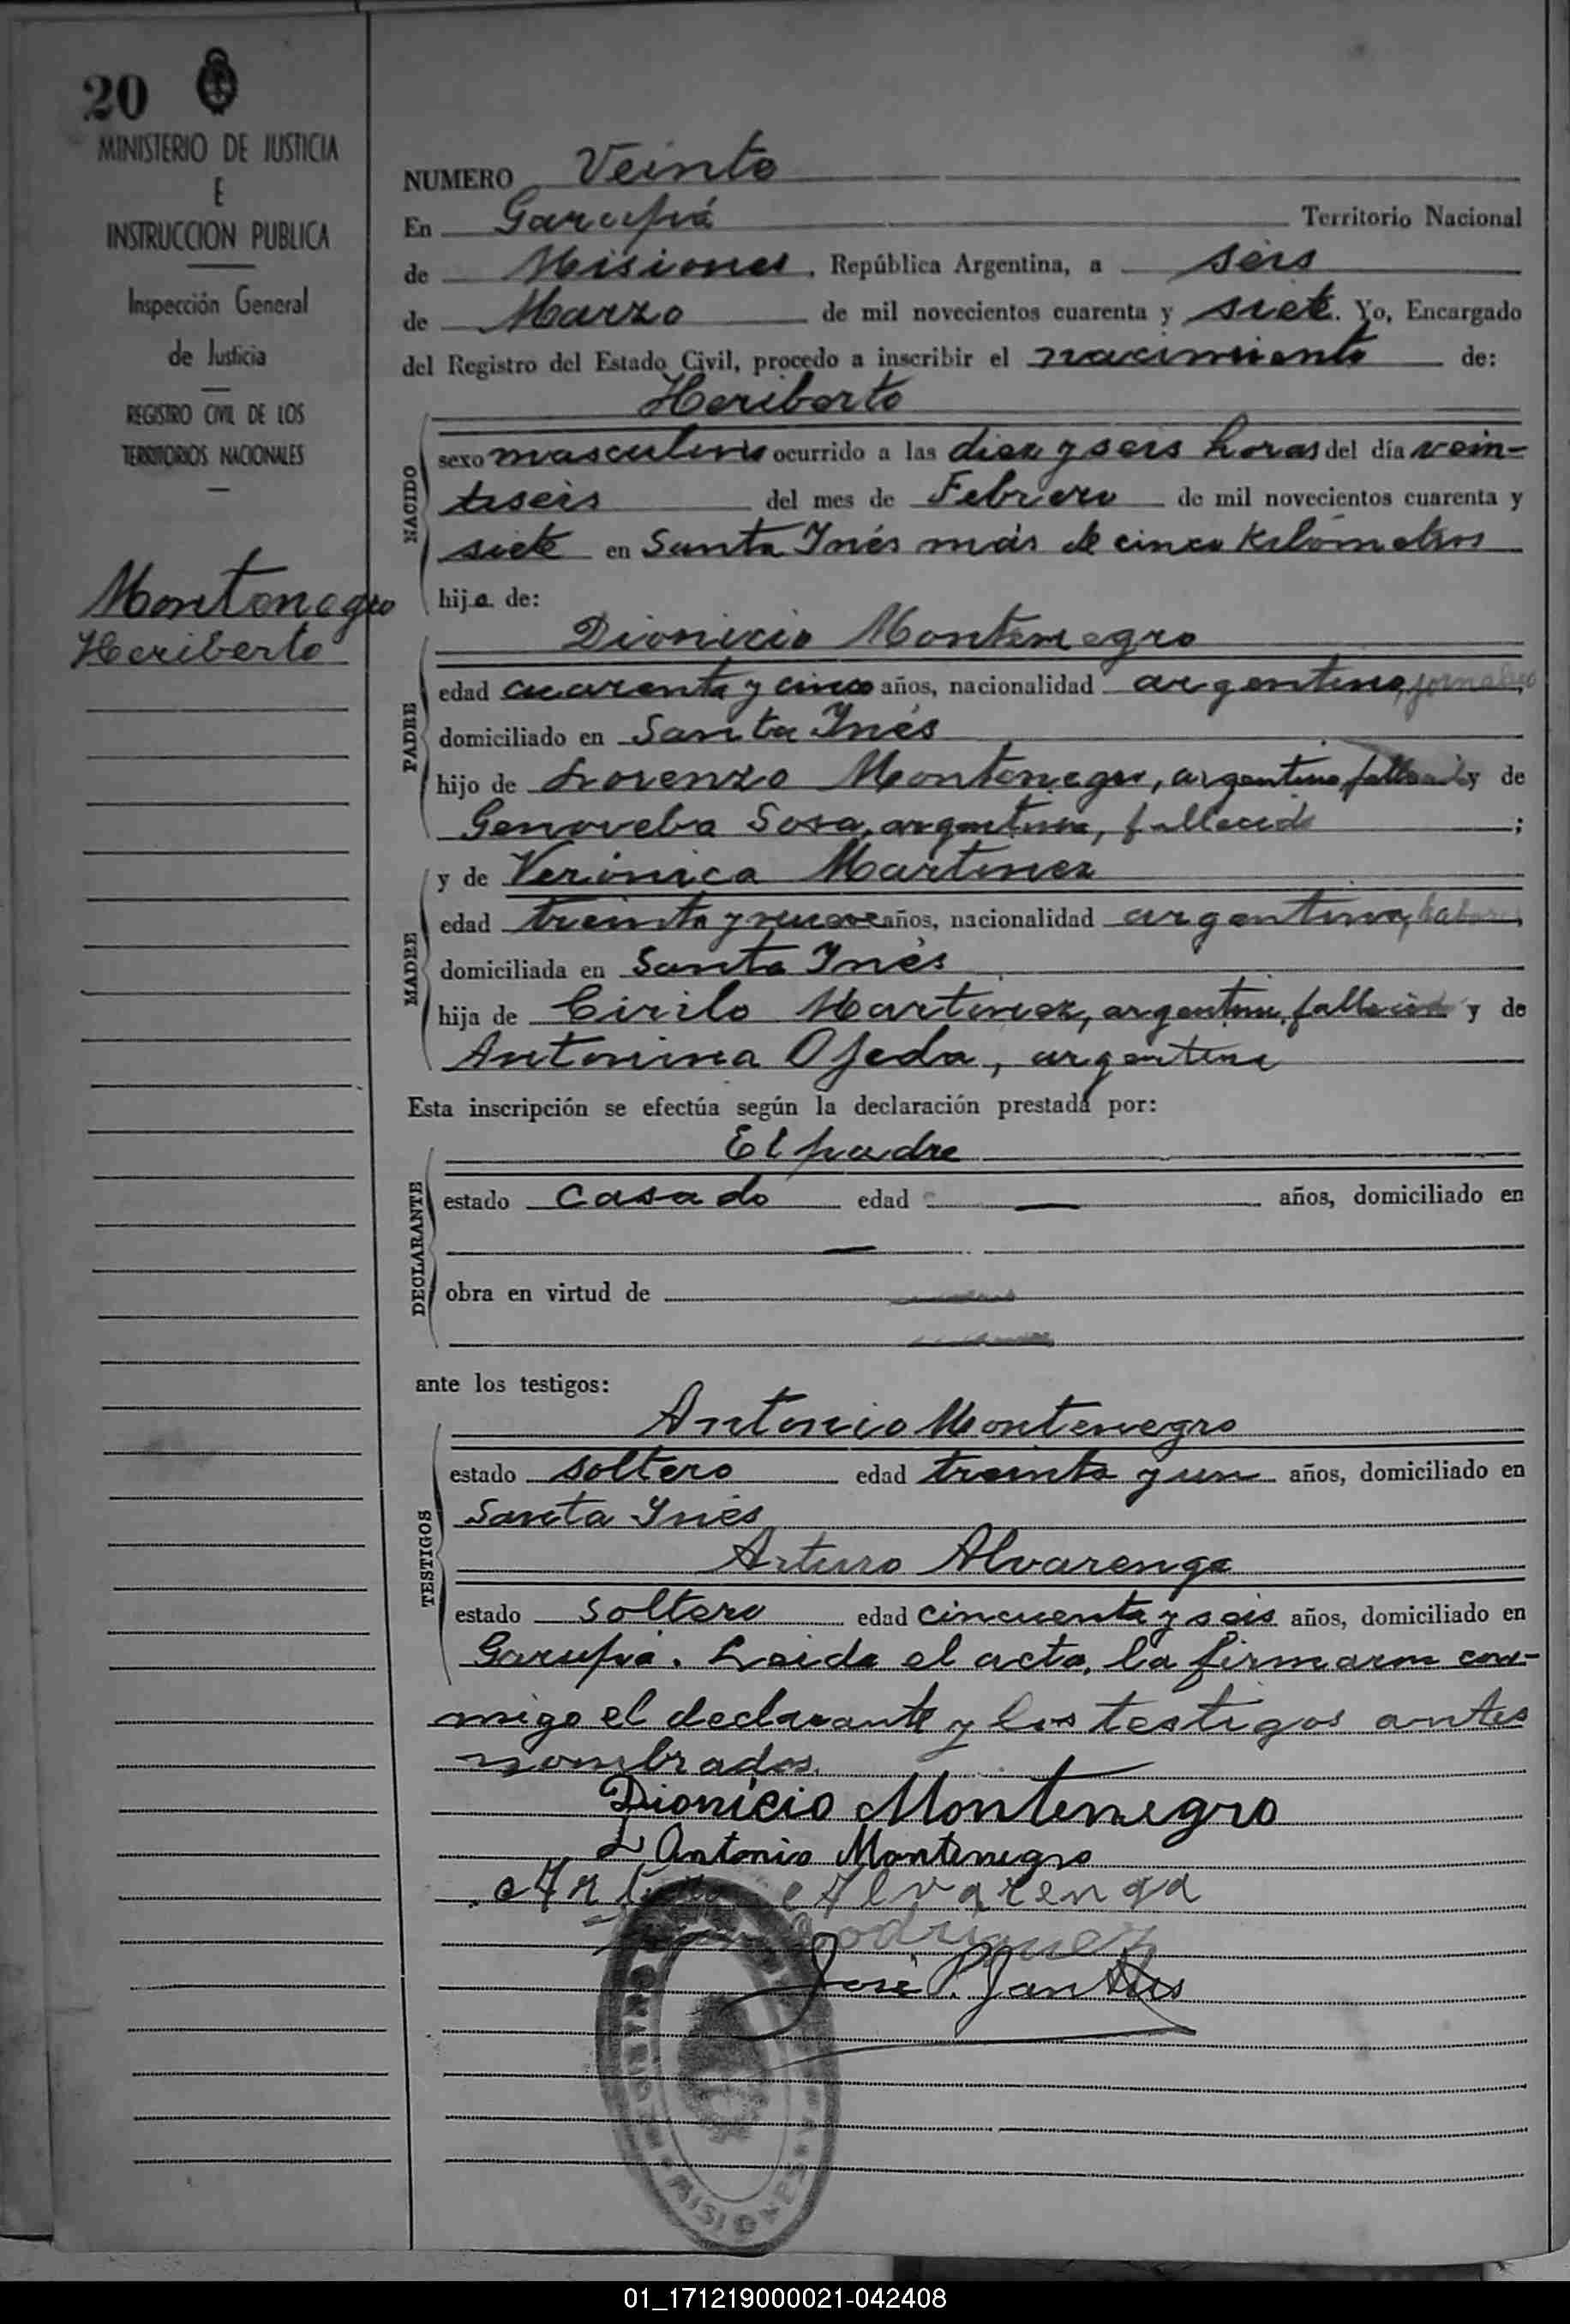 20
MINISTERIO DE JUSTICIA
E
INSTRUCCION PUBLICA
Inspección General
de Justicia
REGISTRO CIVIL DE LOS
TERRITORIOS NACIONALES
Montenegro
Heriberto
NUMERO Veinte
En Garupá Territorio Nacional
de Misiones, República Argentina, a seis
de Marzo de mil novecientos cuarenta y siete. Yo, Encargado
del Registro del Estado Civil, procedo a inscribir el nacimiento de:
NACIDO
Heriberto
sexo masculino ocurrido a las diez y seis horas del día vein-
tiseis del mes de Febrero de mil novecientos cuarenta y
siete en Santa Inés más de cinco Kilómetros
hijo de:
PADRE
Dionicio Montenegro
edad cuarenta y cinco años, nacionalidad argentino, jornalero,
domiciliado en Santa Inés
hijo de Lorenzo Montenegro, argentino, y de
Genoveba Sosa, argentina, fallecida ;
MADRE
y de Verónica Martinez
edad treinta y nueve años, nacionalidad argentina,
domiciliada en Santa Inés
hija de Cirilo Martinez, argentino, fallecido y de
Antonina Ojeda, argentina
Esta inscripción se efectúa según la declaración prestada por:
DECLARANTE
El padre
estado casado edad — años, domiciliado en
—
obra en virtud de
ante los testigos:
TESTIGOS
Antonio Montenegro
estado soltero edad treinta y un años, domiciliado en
Santa Inés
Arturo Alvarenga
estado soltero edad cincuenta y seis años, domiciliado en
Garupá. Leida el acta, la firmaron con-
migo el declarante y los testigos antes
nombrados.
Dionicio Montenegro
Antonio Montenegro
Arturo Alvarenga
Rodriguez
José P.
MISIONES
01_171219000021-042408